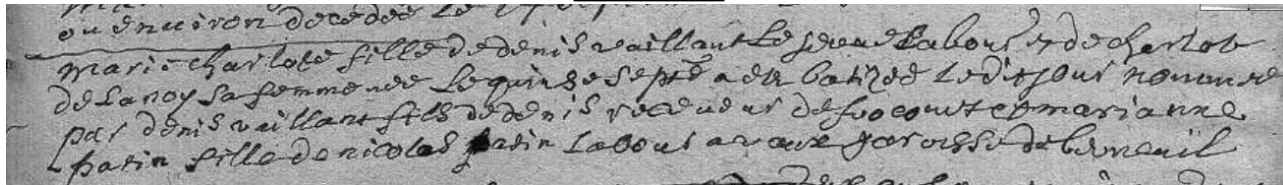 ou environ decedée le
marie charlote fille de denis vaillant le jeune labour et de charlot
de lanoy sa femme née le quinze sept a esté batizée ledit jour nommée
par denis vaillant fils de denis receveur de et marianne
patin fille de nicolas patin labour a vaux paroisse de berneuil